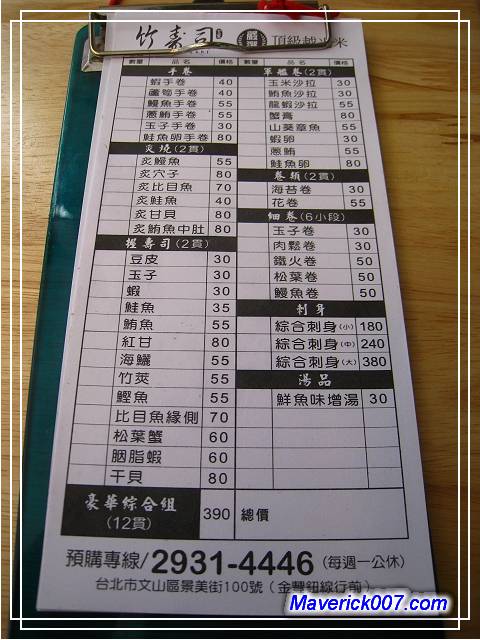 竹壽司
嚴選
頂級越光米
數量 品名 價格
手卷
蝦手卷 40
蘆筍手卷 40
鰻魚手卷 55
蔥鮪手卷 55
玉子手卷 30
鮭魚卵手卷 80
炙燒(2貫)
炙鰻魚 55
炙穴子 80
炙比目魚 70
炙鮭魚 40
炙甘貝 80
炙鮪魚中肚 80
握壽司(2貫)
豆皮 30
玉子 30
蝦 30
鮭魚 35
鮪魚 55
紅甘 80
海鱺 55
竹莢 55
鰹魚 55
比目魚緣側 70
松葉蟹 60
胭脂蝦 60
干貝 80
豪華綜合組
(12貫) 390
數量 品名 價格
軍艦卷(2貫)
玉米沙拉 30
鮪魚沙拉 30
龍蝦沙拉 55
蟹膏 80
山葵章魚 55
蝦卵 30
蔥鮪 55
鮭魚卵 80
卷類(2貫)
海苔卷 30
花卷 55
細卷(6小段)
玉子卷 30
肉鬆卷 30
鐵火卷 50
松葉卷 50
鰻魚卷 50
刺身
綜合刺身(小) 180
綜合刺身(中) 240
綜合刺身(大) 380
湯品
鮮魚味增湯 30
總價
預購專線/2931-4446(每週一公休)
台北市文山區景美街100號(金豐鈕線行前)
Maverick007.com